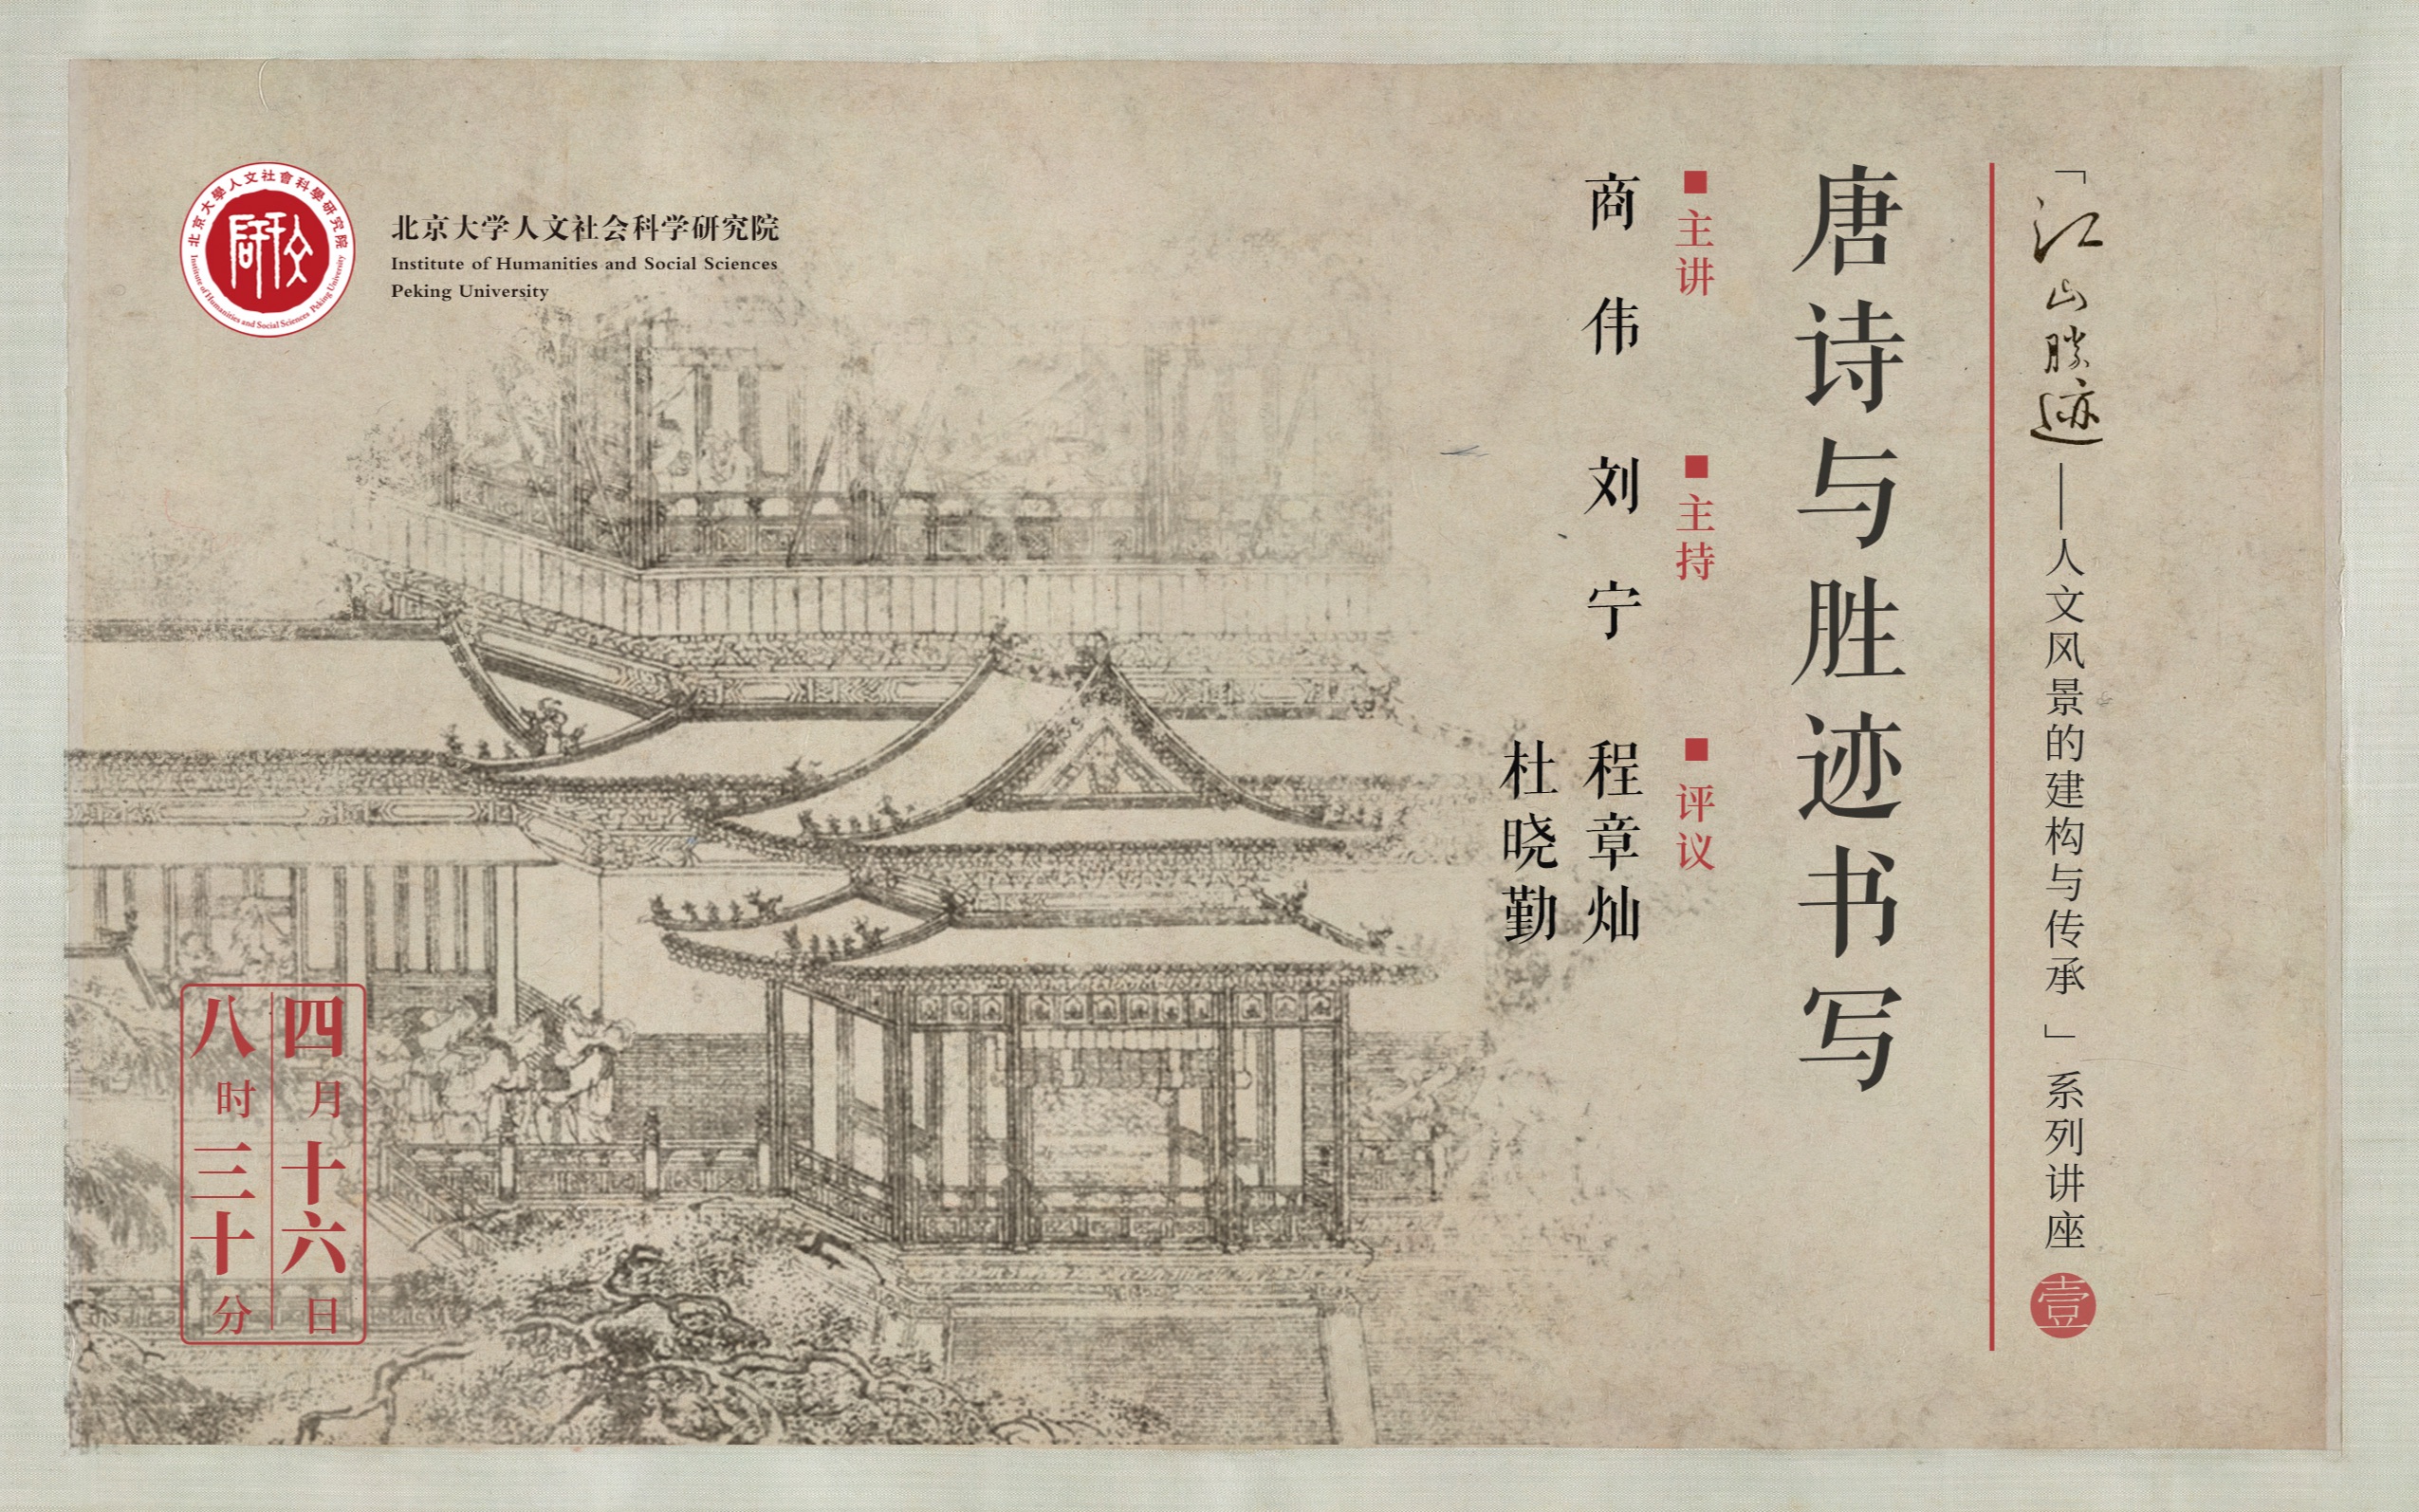 「江山勝迹——人文风景的建构与传承」系列讲座
壹
唐诗与胜迹书写
■主讲
商伟
■主持
刘宁
■评议
程章灿
杜晓勤
北京大學人文社會科學研究院
Institute of Humanities and Social Sciences Peking University
北京大学人文社会科学研究院
Institute of Humanities and Social Sciences
Peking University
四月十六日
八时三十分